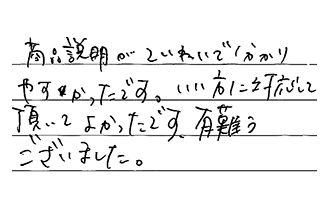 商品説明がていねいで分かり
やすかったです。いい方に対応して
頂いてよかったです。有難う
ございました。